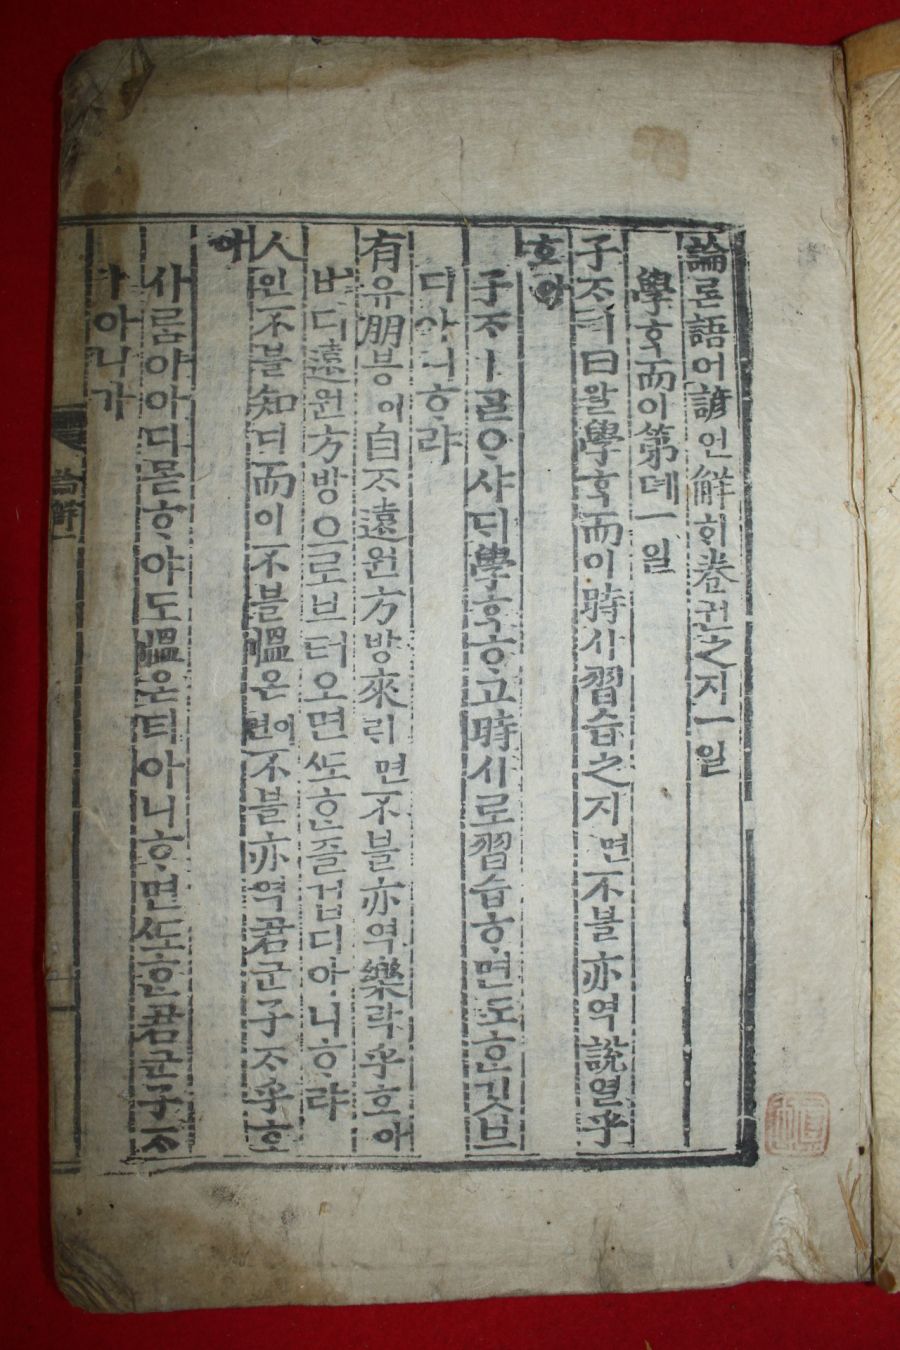 論론語어諺언解ᄒᆡ卷권之지一일
學ᄒᆞᆨ而이第뎨一일
子ᄌᆞㅣ曰왈學ᄒᆞᆨ而이時시習습之지면不블亦역說열乎
호아
子ᄌᆞㅣᄀᆞᆯᄋᆞ샤ᄃᆡ學ᄒᆞᆨᄒᆞ고時시로習습ᄒᆞ면도ᄒᆞᆫ깃브
디아니ᄒᆞ랴
有유朋붕이自ᄌᆞ遠원方방來ᄅᆡ면不블亦역樂락乎호아
버디遠원方방으로브터오면ᄯᅩᄒᆞᆫ즐겁디아니ᄒᆞ랴
人인不블知디而이不블慍온이면不블亦역君군子ᄌᆞ乎호
아
사름이아디몯ᄒᆞ야도慍온티아니ᄒᆞ면ᄯᅩᄒᆞᆫ君군子ᄌᆞ
아니가
論解一